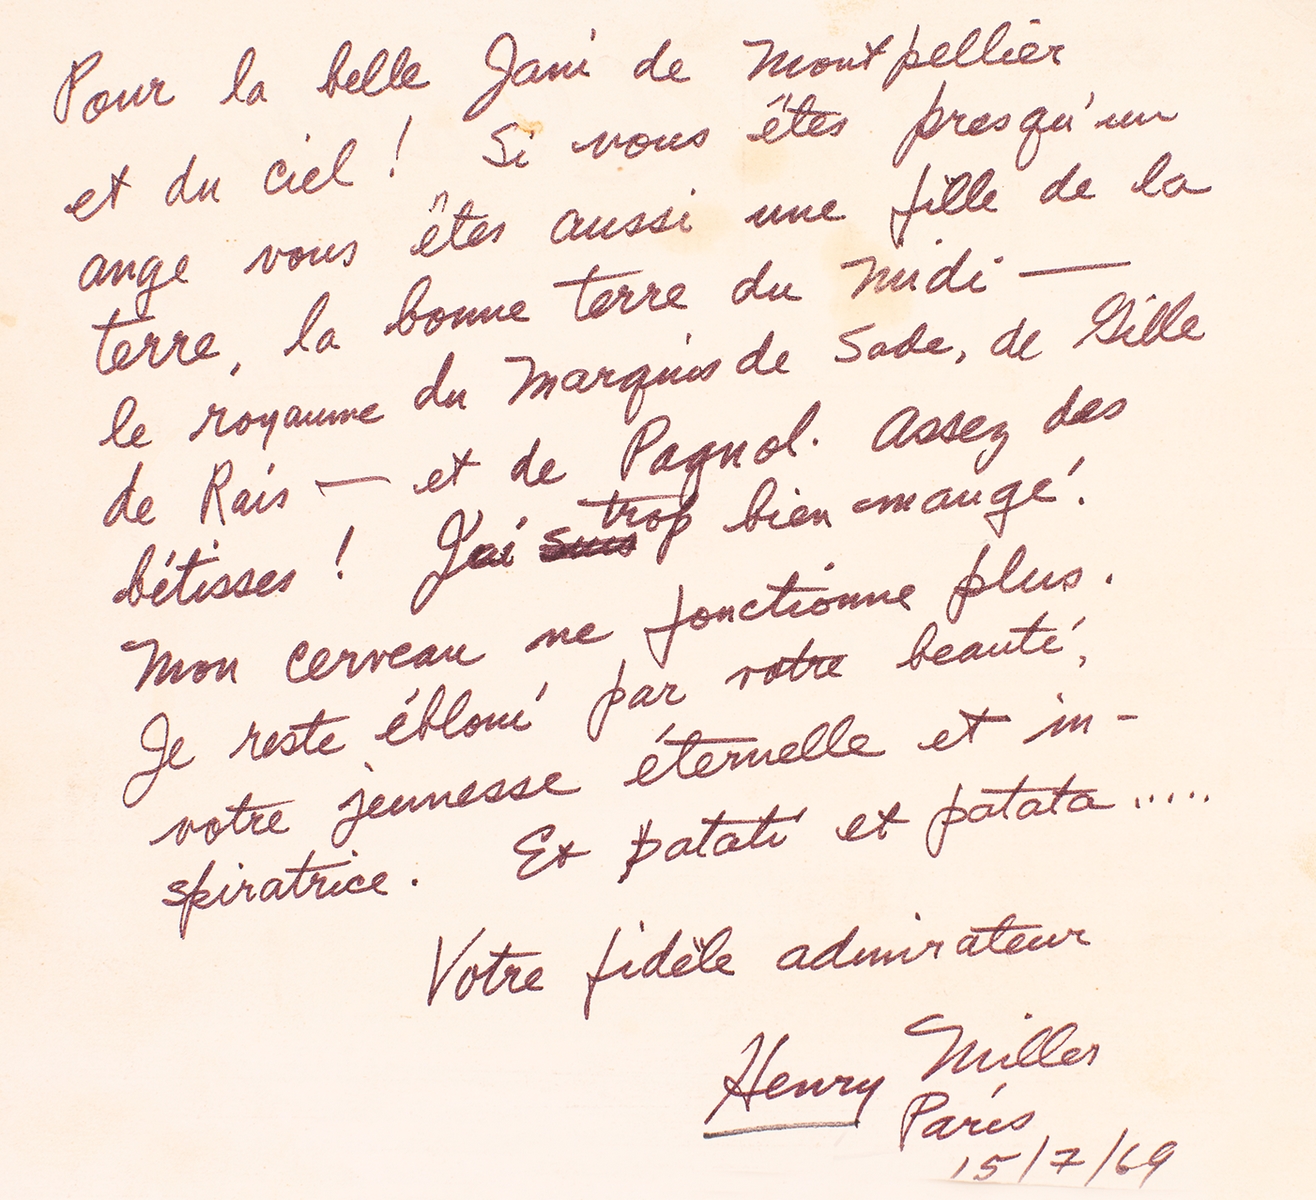 Pour la belle Jani de Montpellier
et du ciel ! Si vous êtes presqu'un
ange vous êtes aussi une fille de la
terre, la bonne terre du Midi —
le royaume du Marquis de Sade, de Gille
de Rais — et de Pagnol. Assez des
bétisses ! J'ai trop bien mangé.
Mon cerveau ne fonctionne plus.
Je reste ébloui par votre beauté,
votre jeunesse éternelle et in-
spiratrice. Et patati et patata .....
Votre fidèle admirateur
Henry Miller
Paris
15/7/69